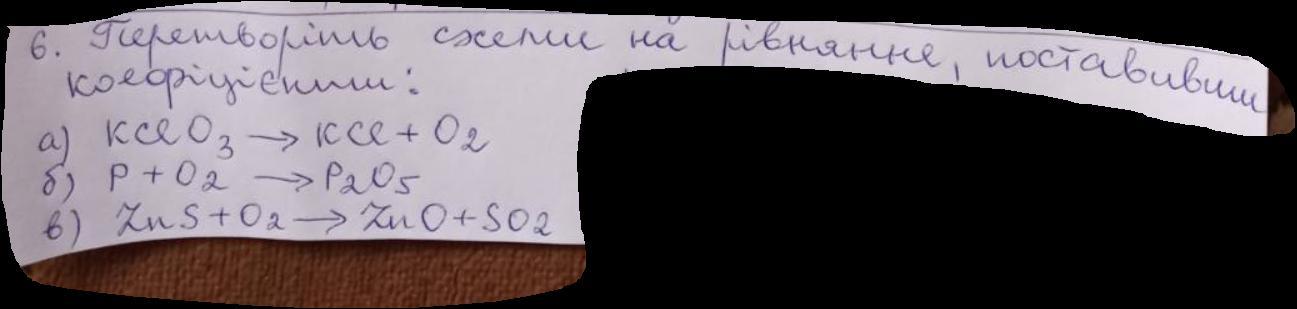 6. Перетворіть схеми на рівняння, поставивши
коефіцієнти:
а) KClO3 → KCl + O2
б) P + O2 → P2O5
в) ZnS + O2 → ZnO + SO2